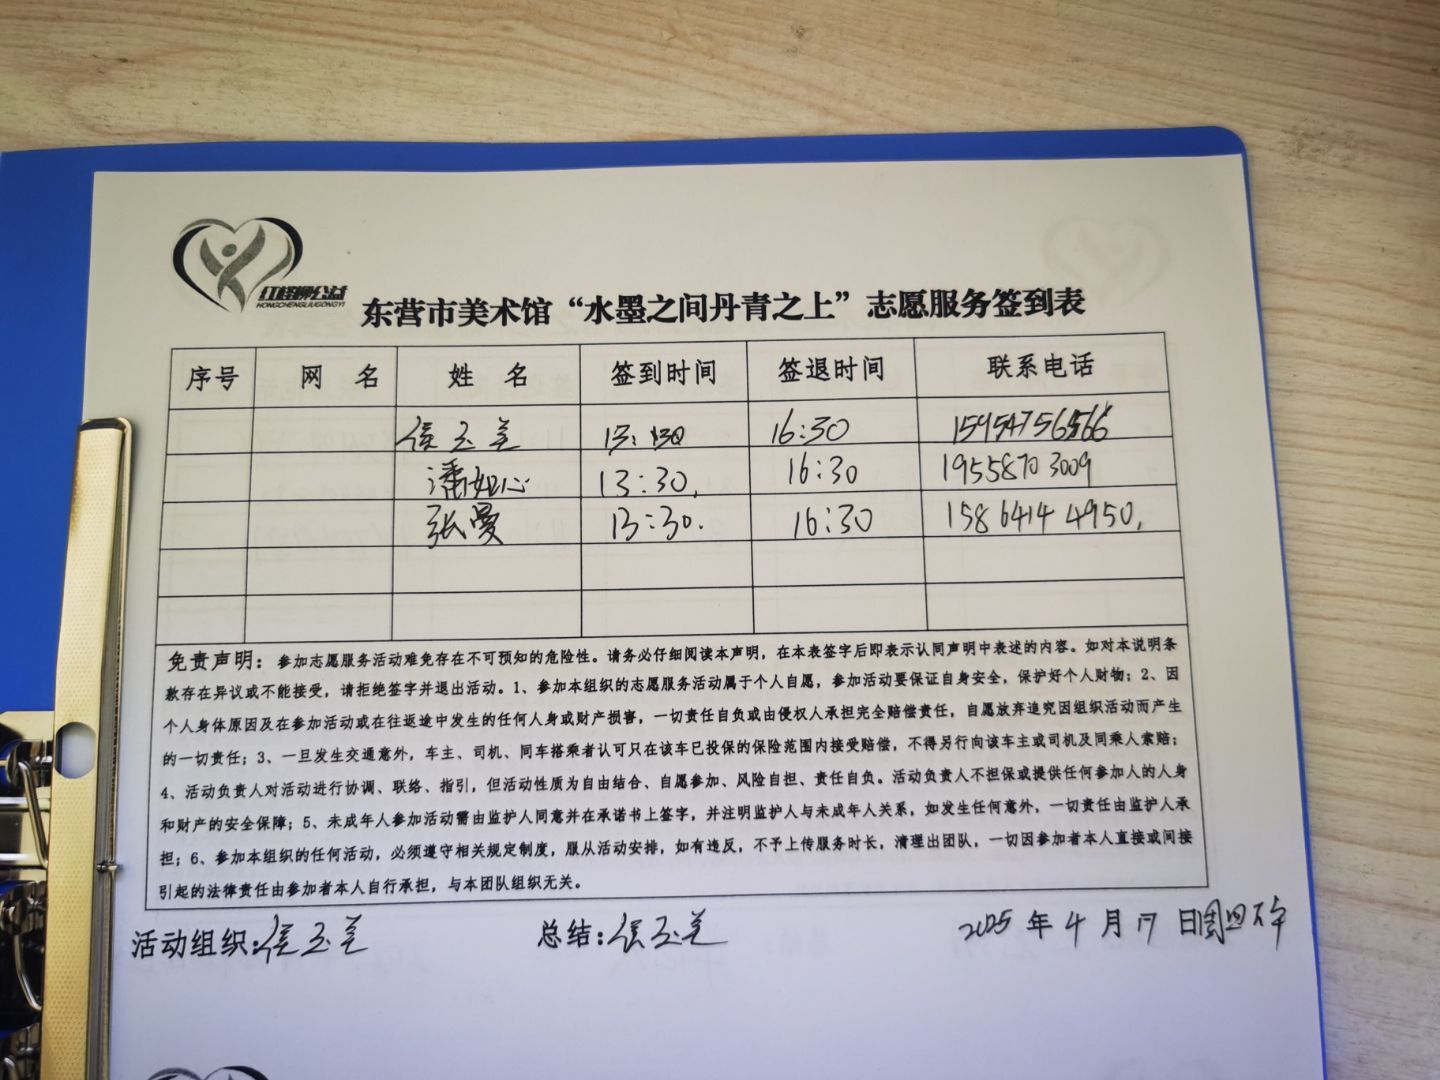 红柽柳公益
HONGCHENGLIUGONGYI
东营市美术馆“水墨之间丹青之上”志愿服务签到表
序号 网 名 姓 名 签到时间 签退时间 联系电话
侯玉兰 13:30 16:30
潘如心 13:30. 16:30 19558703009
张曼 13:30. 16:30 15864144950.
免责声明：参加志愿服务活动难免存在不可预知的危险性。请务必仔细阅读本声明，在本表签字后即表示认同声明中表述的内容。如对本说明条
款存在异议或不能接受，请拒绝签字并退出活动。1、参加本组织的志愿服务活动属于个人自愿，参加活动要保证自身安全，保护好个人财物；2、因
个人身体原因及在参加活动或在往返途中发生的任何人身或财产损害，一切责任自负或由侵权人承担完全赔偿责任，自愿放弃追究因组织活动而产生
的一切责任；3、一旦发生交通意外，车主、司机、同车搭乘者认可只在该车已投保的保险范围内接受赔偿，不得另行向该车主或司机及同乘人索赔；
4、活动负责人对活动进行协调、联络、指引，但活动性质为自由结合、自愿参加、风险自担、责任自负。活动负责人不担保或提供任何参加人的人身
和财产的安全保障；5、未成年人参加活动需由监护人同意并在承诺书上签字，并注明监护人与未成年人关系，如发生任何意外，一切责任由监护人承
担；6、参加本组织的任何活动，必须遵守相关规定制度，服从活动安排，如有违反，不予上传服务时长，清理出团队，一切因参加者本人直接或间接
引起的法律责任由参加者本人自行承担，与本团队组织无关。
活动组织：侯玉兰 总结：侯玉兰 2025 年 4 月 17 日周四下午